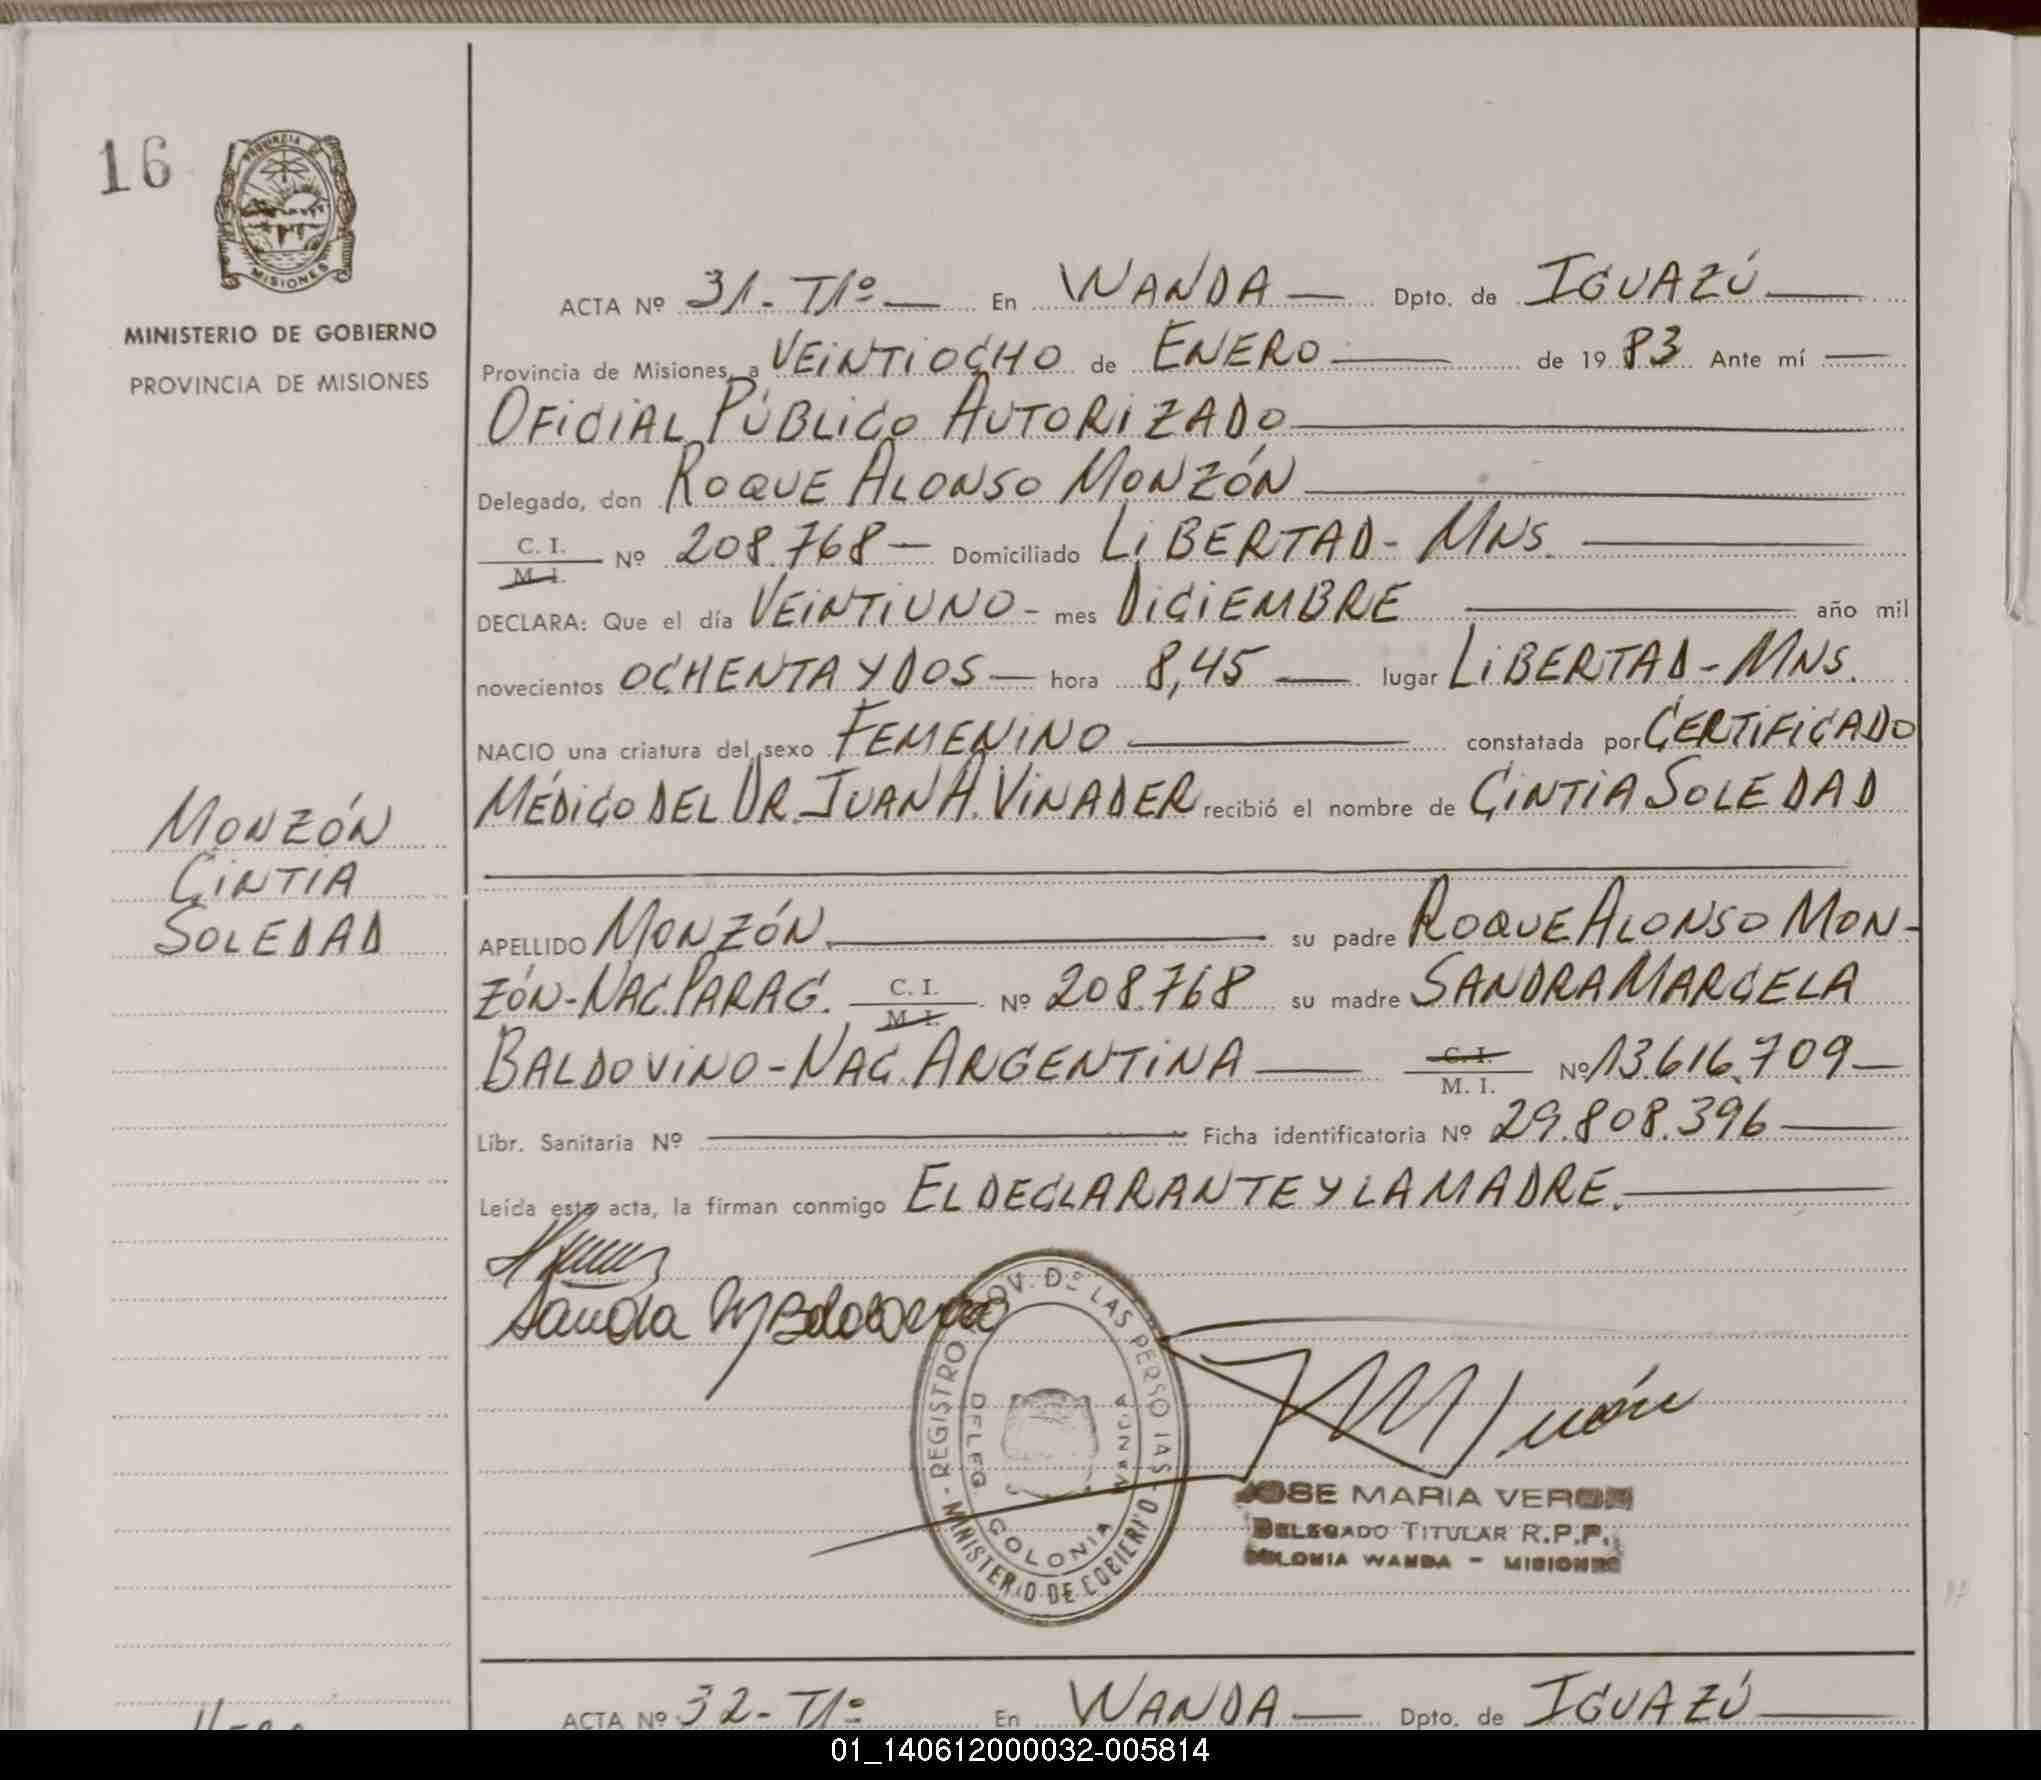 16
PROVINCIA DE
MISIONES
MINISTERIO DE GOBIERNO
PROVINCIA DE MISIONES
ACTA Nº 31-T1º En WANDA Dpto. de IGUAZÚ
Provincia de Misiones, a VEINTIOCHO de ENERO de 1983 Ante mí
OFICIAL PÚBLICO AUTORIZADO
Delegado, don ROQUE ALONSO MONZÓN
C. I.
M. I. Nº 208.768 Domiciliado LIBERTAD - MNS.
DECLARA: Que el día VEINTIUNO - mes DICIEMBRE año mil
novecientos OCHENTA Y DOS hora 8,45 lugar LIBERTAD - MNS.
NACIO una criatura del sexo FEMENINO constatada por CERTIFICADO
MÉDICO DEL DR. JUAN A. VINADER recibió el nombre de CINTIA SOLEDAD
MONZÓN
CINTIA
SOLEDAD
APELLIDO MONZÓN su padre ROQUE ALONSO MON-
ZÓN - NAC. PARAG. C. I. M. I. Nº 208.768 su madre SANDRA MARCELA
BALDOVINO - NAC. ARGENTINA C. I. M. I. Nº 13.616.709
Libr. Sanitaria Nº Ficha identificatoria Nº 29.808.396
Leída esta acta, la firman conmigo EL DECLARANTE Y LA MADRE.
Sandra M Baldovino
REGISTRO PROV. Dº LAS PERSONAS
DELEG. COLONIA WANDA
MINISTERIO DE GOBIERNO
JOSE MARIA VERON
DELEGADO TITULAR R.P.P.
COLONIA WANDA - MISIONES
ACTA Nº 32-T1º En WANDA Dpto. de IGUAZÚ
01_140612000032-005814